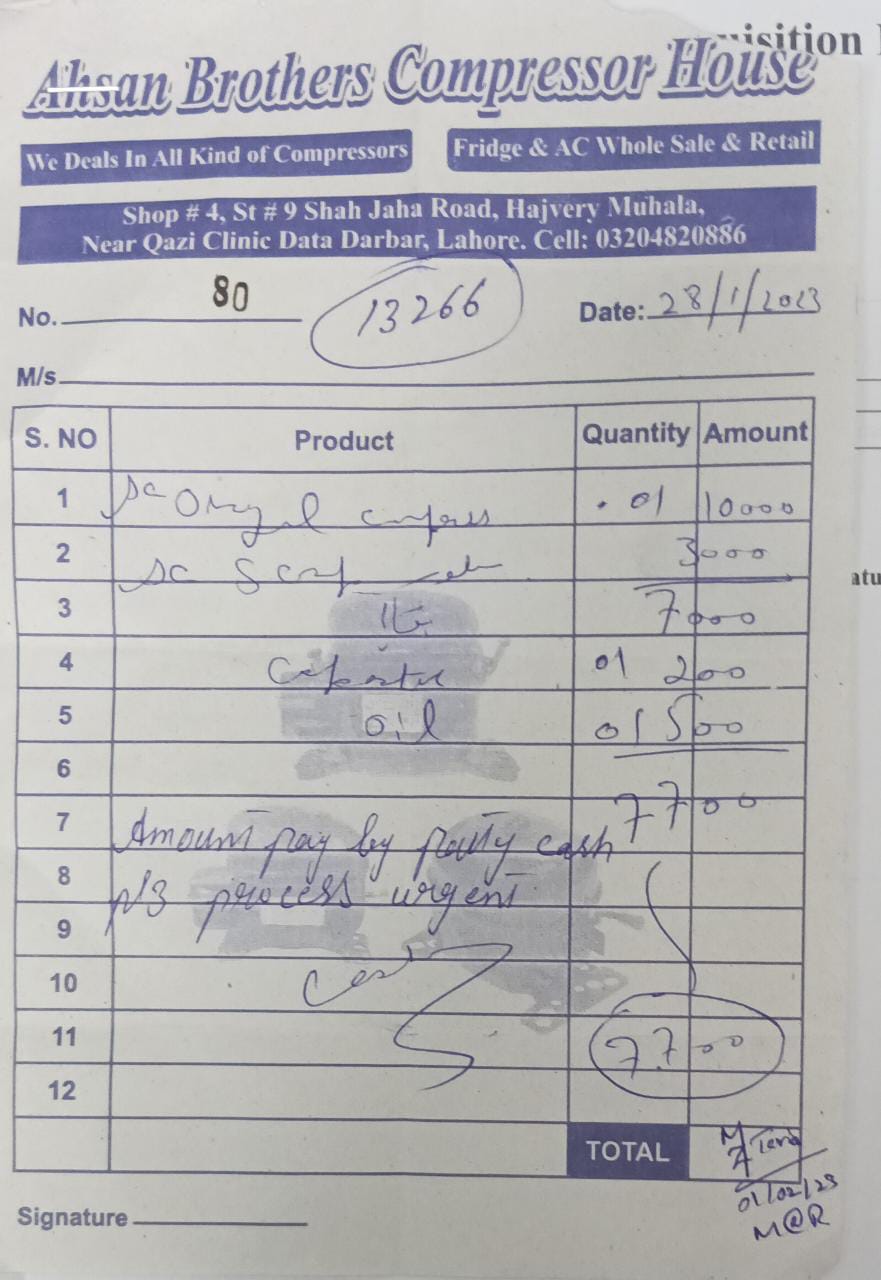 uisition
Ahsan Brothers Compressor House
We Deals In All Kind of Compressors
Fridge & AC Whole Sale & Retail
Shop # 4, St # 9 Shah Jaha Road, Hajvery Muhala,
Near Qazi Clinic Data Darbar, Lahore. Cell: 03204820886
No. 80 13266 Date: 28/1/2023
M/s
S. NO Product Quantity Amount
1 01 10000
2 3000
3 7000
4 01 200
5 oil 01 500
6
7700
7 Amount pay by patty cash
8 process urgent
9
10
11 7700
12
TOTAL
01/02/23
M@R
Signature